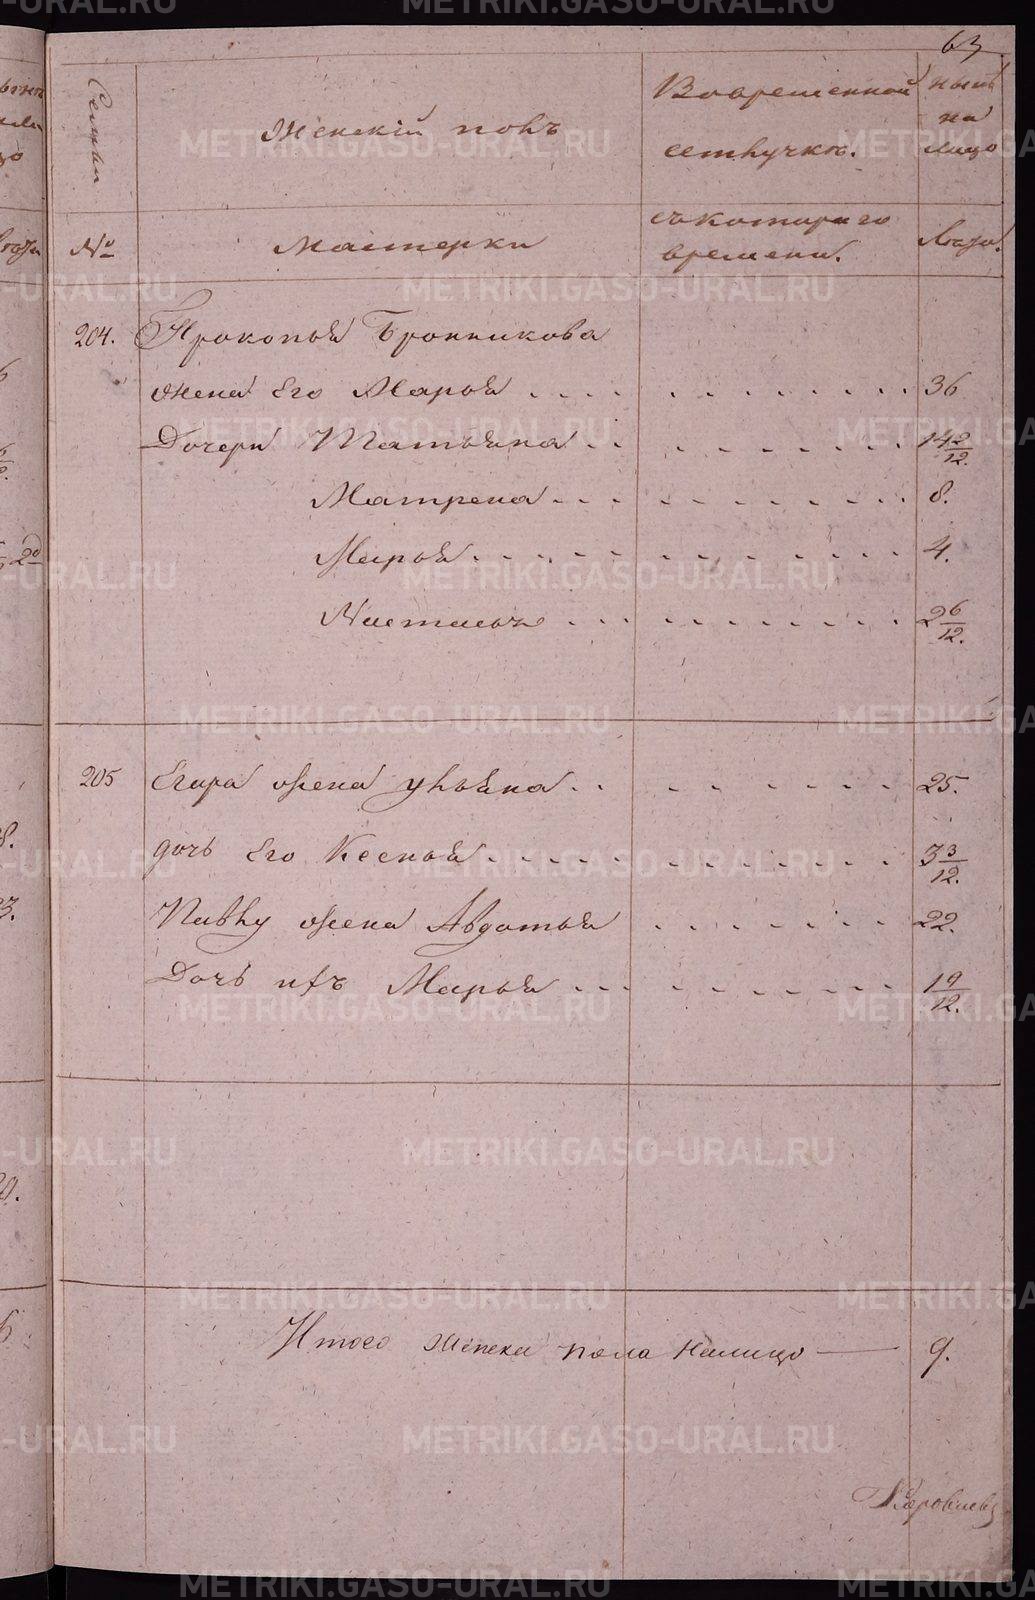 63
Семьи
Женскій полъ
Вовременной
отлучкѣ.
нынѣ
на
лицо
№
Мастерки
съ котораго
времени.
Лѣта.
204. Прокопья Бронникова
жена Его Марья 36
Дочери Татьяна 14 2/12.
Матрена 8.
Марья 4.
Настасья 2 6/12.
205 Егора жена Ульяна 25.
дочь Его Ксенья 3 3/12.
Павлу жена Авдотья 22.
Дочь ихъ Марья 19/12.
Итого женска пола налицо — 9.
METRIKI.GASO-URAL.RU